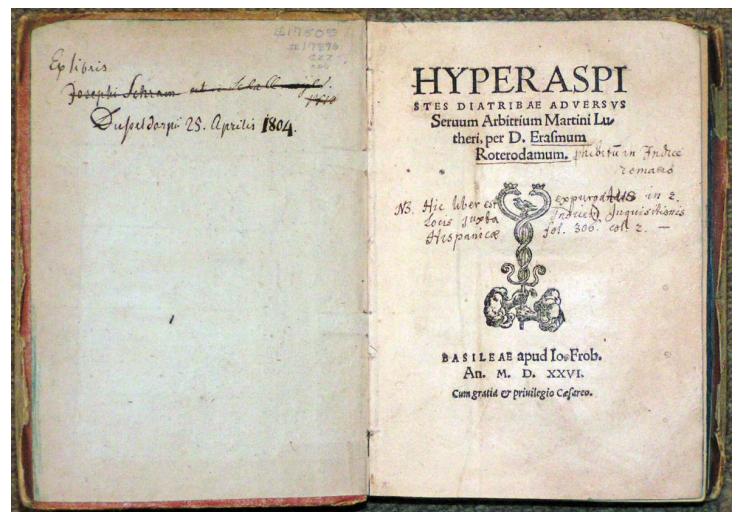 #17505
#17876
Ex libris
Josephi Schram
Dusseldorpii 25. Aprilis 1804.
HYPERASPI
STES DIATRIBAE ADVERSVS
Seruum Arbitrium Martini Lu-
theri, per D. Erasmum
Roterodamum. phibitũ in Indice
romano
NB. Hic liber est expurgatus in 2.
Locis juxta Indicem Inquisitionis
Hispanicæ fol. 306. col 2. —
BASILEAE apud Io. Frob.
An. M. D. XXVI.
Cum gratia & priuilegio Cæsareo.